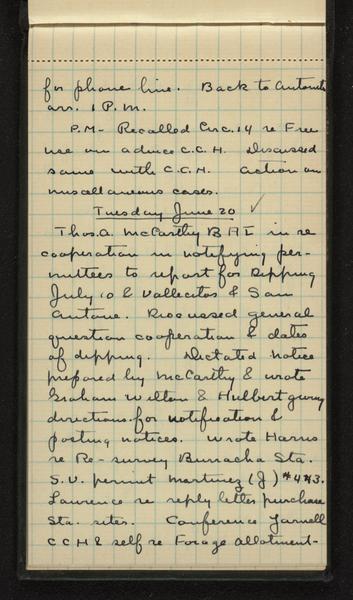 for phone line. Back to Antonito
arr. 1 P.M.
P.M- Recalled Circ. 14 re Free
use on advice C.C.H. Discussed
same with C.C.H. action on
miscellaneous cases.
Tuesday June 20
Thos. A. McCarthy B A I in re
cooperation in notifying per-
mittees to report for Dipping
July 10 & Vallecitos & San
Antone. Discussed general
question cooperation & dates
of dipping. Dictated notice
prepared by McCarthy & wrote
Graham Wilton & Hulbert giving
directions for notification &
posting notices. Wrote Harris
re Re-survey Burracha Sta.
S.U. permit Martinez (J) #443.
Lawrence re reply letter purchase
Sta. sites. Conference Yarnell
C C H & self re Forage allotment-